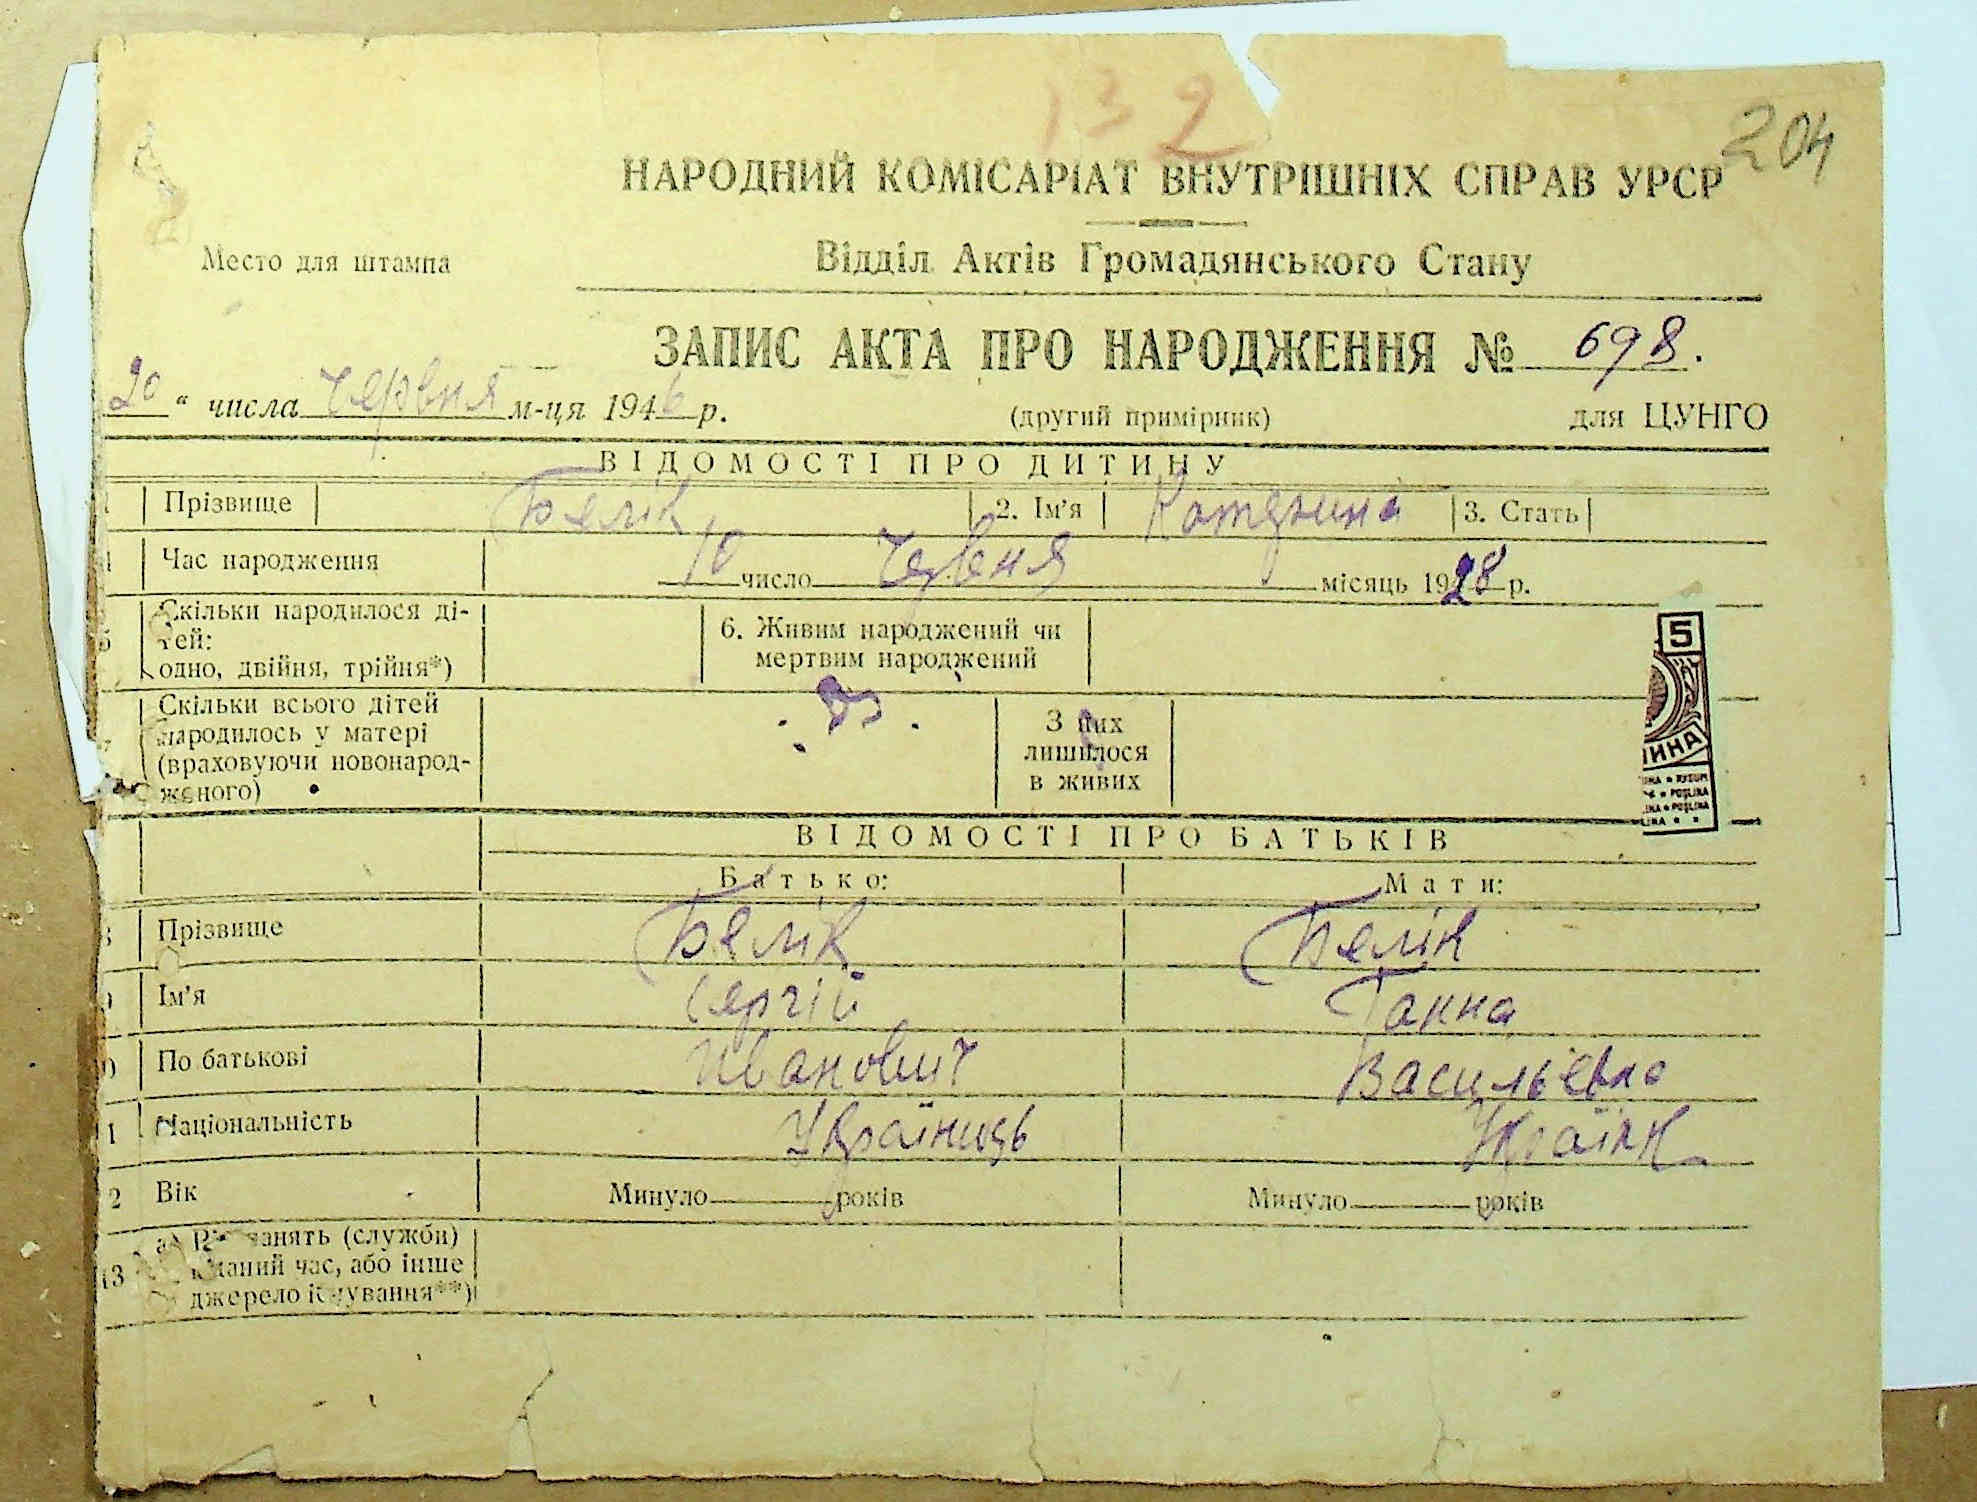 132
204
НАРОДНИЙ КОМІСАРІАТ ВНУТРІШНІХ СПРАВ УРСР
Место для штампа
Відділ Актів Громадянського Стану
ЗАПИС АКТА ПРО НАРОДЖЕННЯ № 698.
20 " числа червня м-ця 1946 р.
(другий примірник)
для ЦУНГО
ВІДОМОСТІ ПРО ДИТИНУ
Прізвище Белік 2. Ім'я Катерина 3. Стать
Час народження 10 число Червня місяць 1928 р.
Скільки народилося ді-
тей:
одно, двійня, трійня*)
6. Живим народжений чи
мертвим народжений
Скільки всього дітей
народилось у матері
(враховуючи новонарод-
женого)
З них
лишилося
в живих
5
ИНА
ВІДОМОСТІ ПРО БАТЬКІВ
Батько: Мати:
Прізвище Белік Белік
Ім'я Сергій Ганна
По батькові Иванович Васильевна
Національність Українець Українк
2 Вік Минуло років Минуло років
13 занять (служби)
даний час, або інше
джерело існування**)